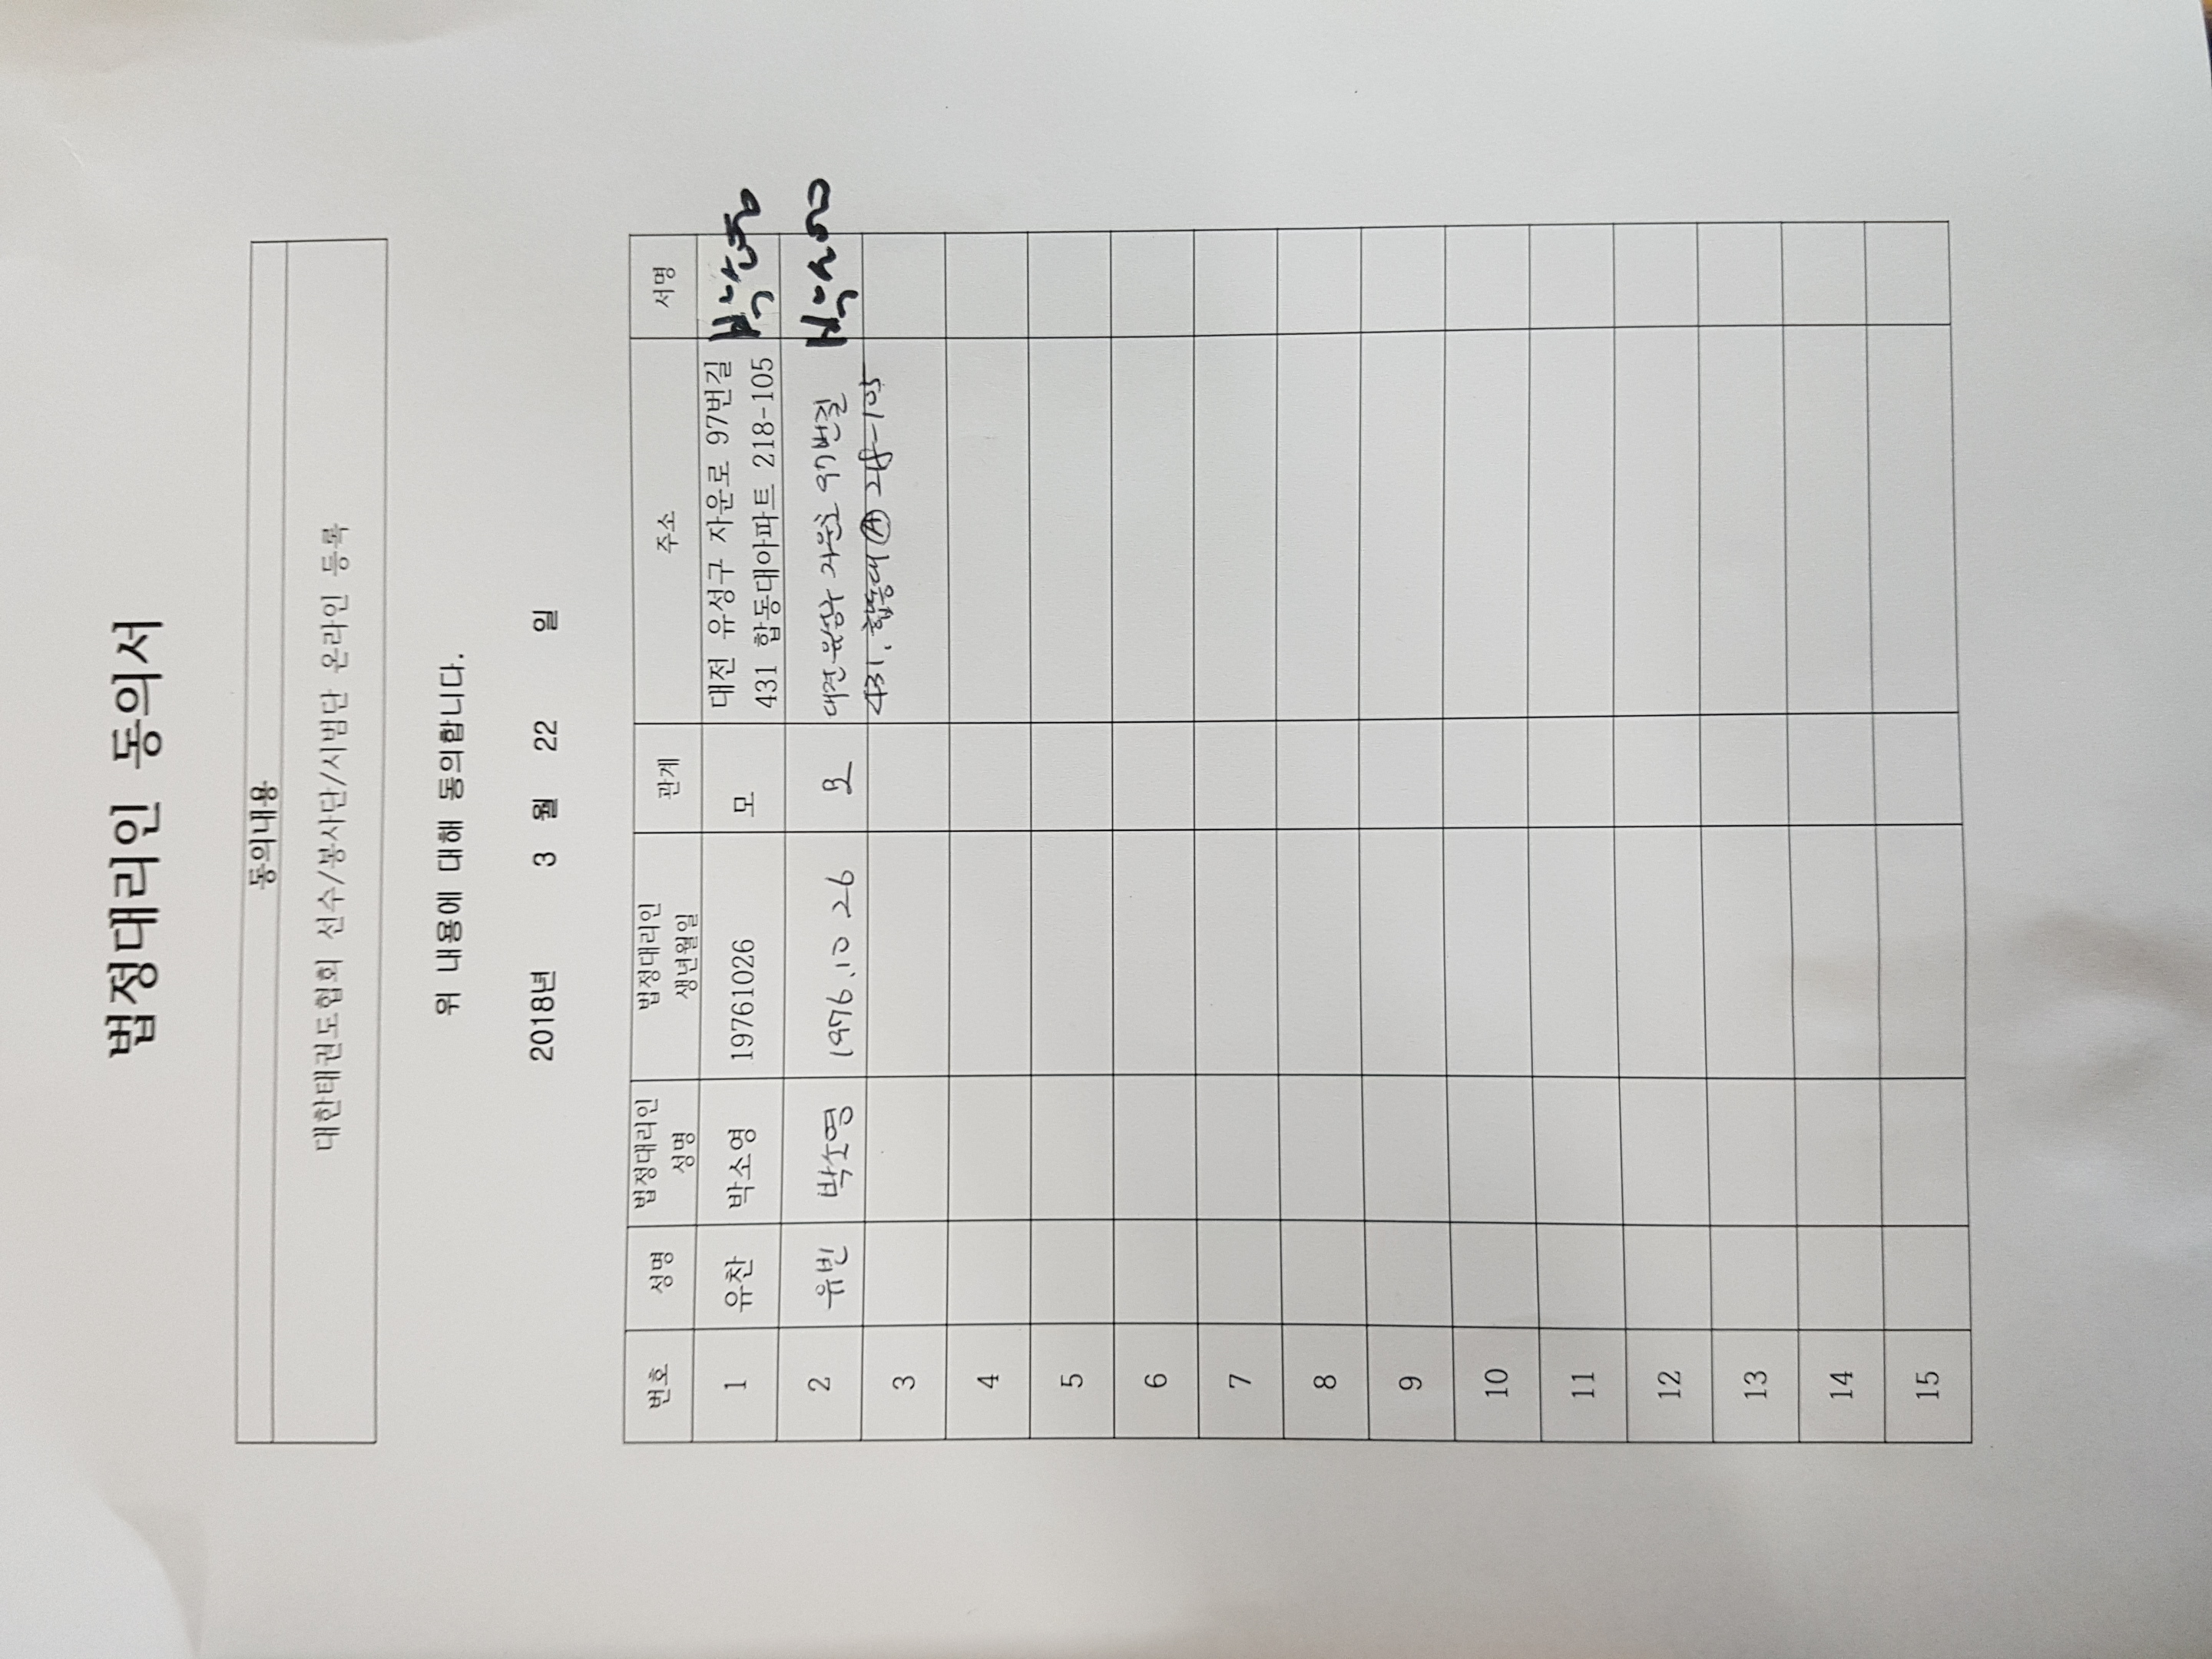 법정대리인 동의서
동의내용
대한태권도협회 선수/봉사단/시범단 온라인 등록
위 내용에 대해 동의합니다.
2018년 3 월 22 일
번호 성명 법정대리인 성명 법정대리인 생년월일 관계 주소 서명
1 유찬 박소영 19761026 모 대전 유성구 자운로 97번길 431 합동대아파트 218-105 박소영
2 유빈 박소영 1976.10 26 모 대전 유성구 자운로 97번길 431, 합동대 Ⓐ 218-105 박소영
3
4
5
6
7
8
9
10
11
12
13
14
15